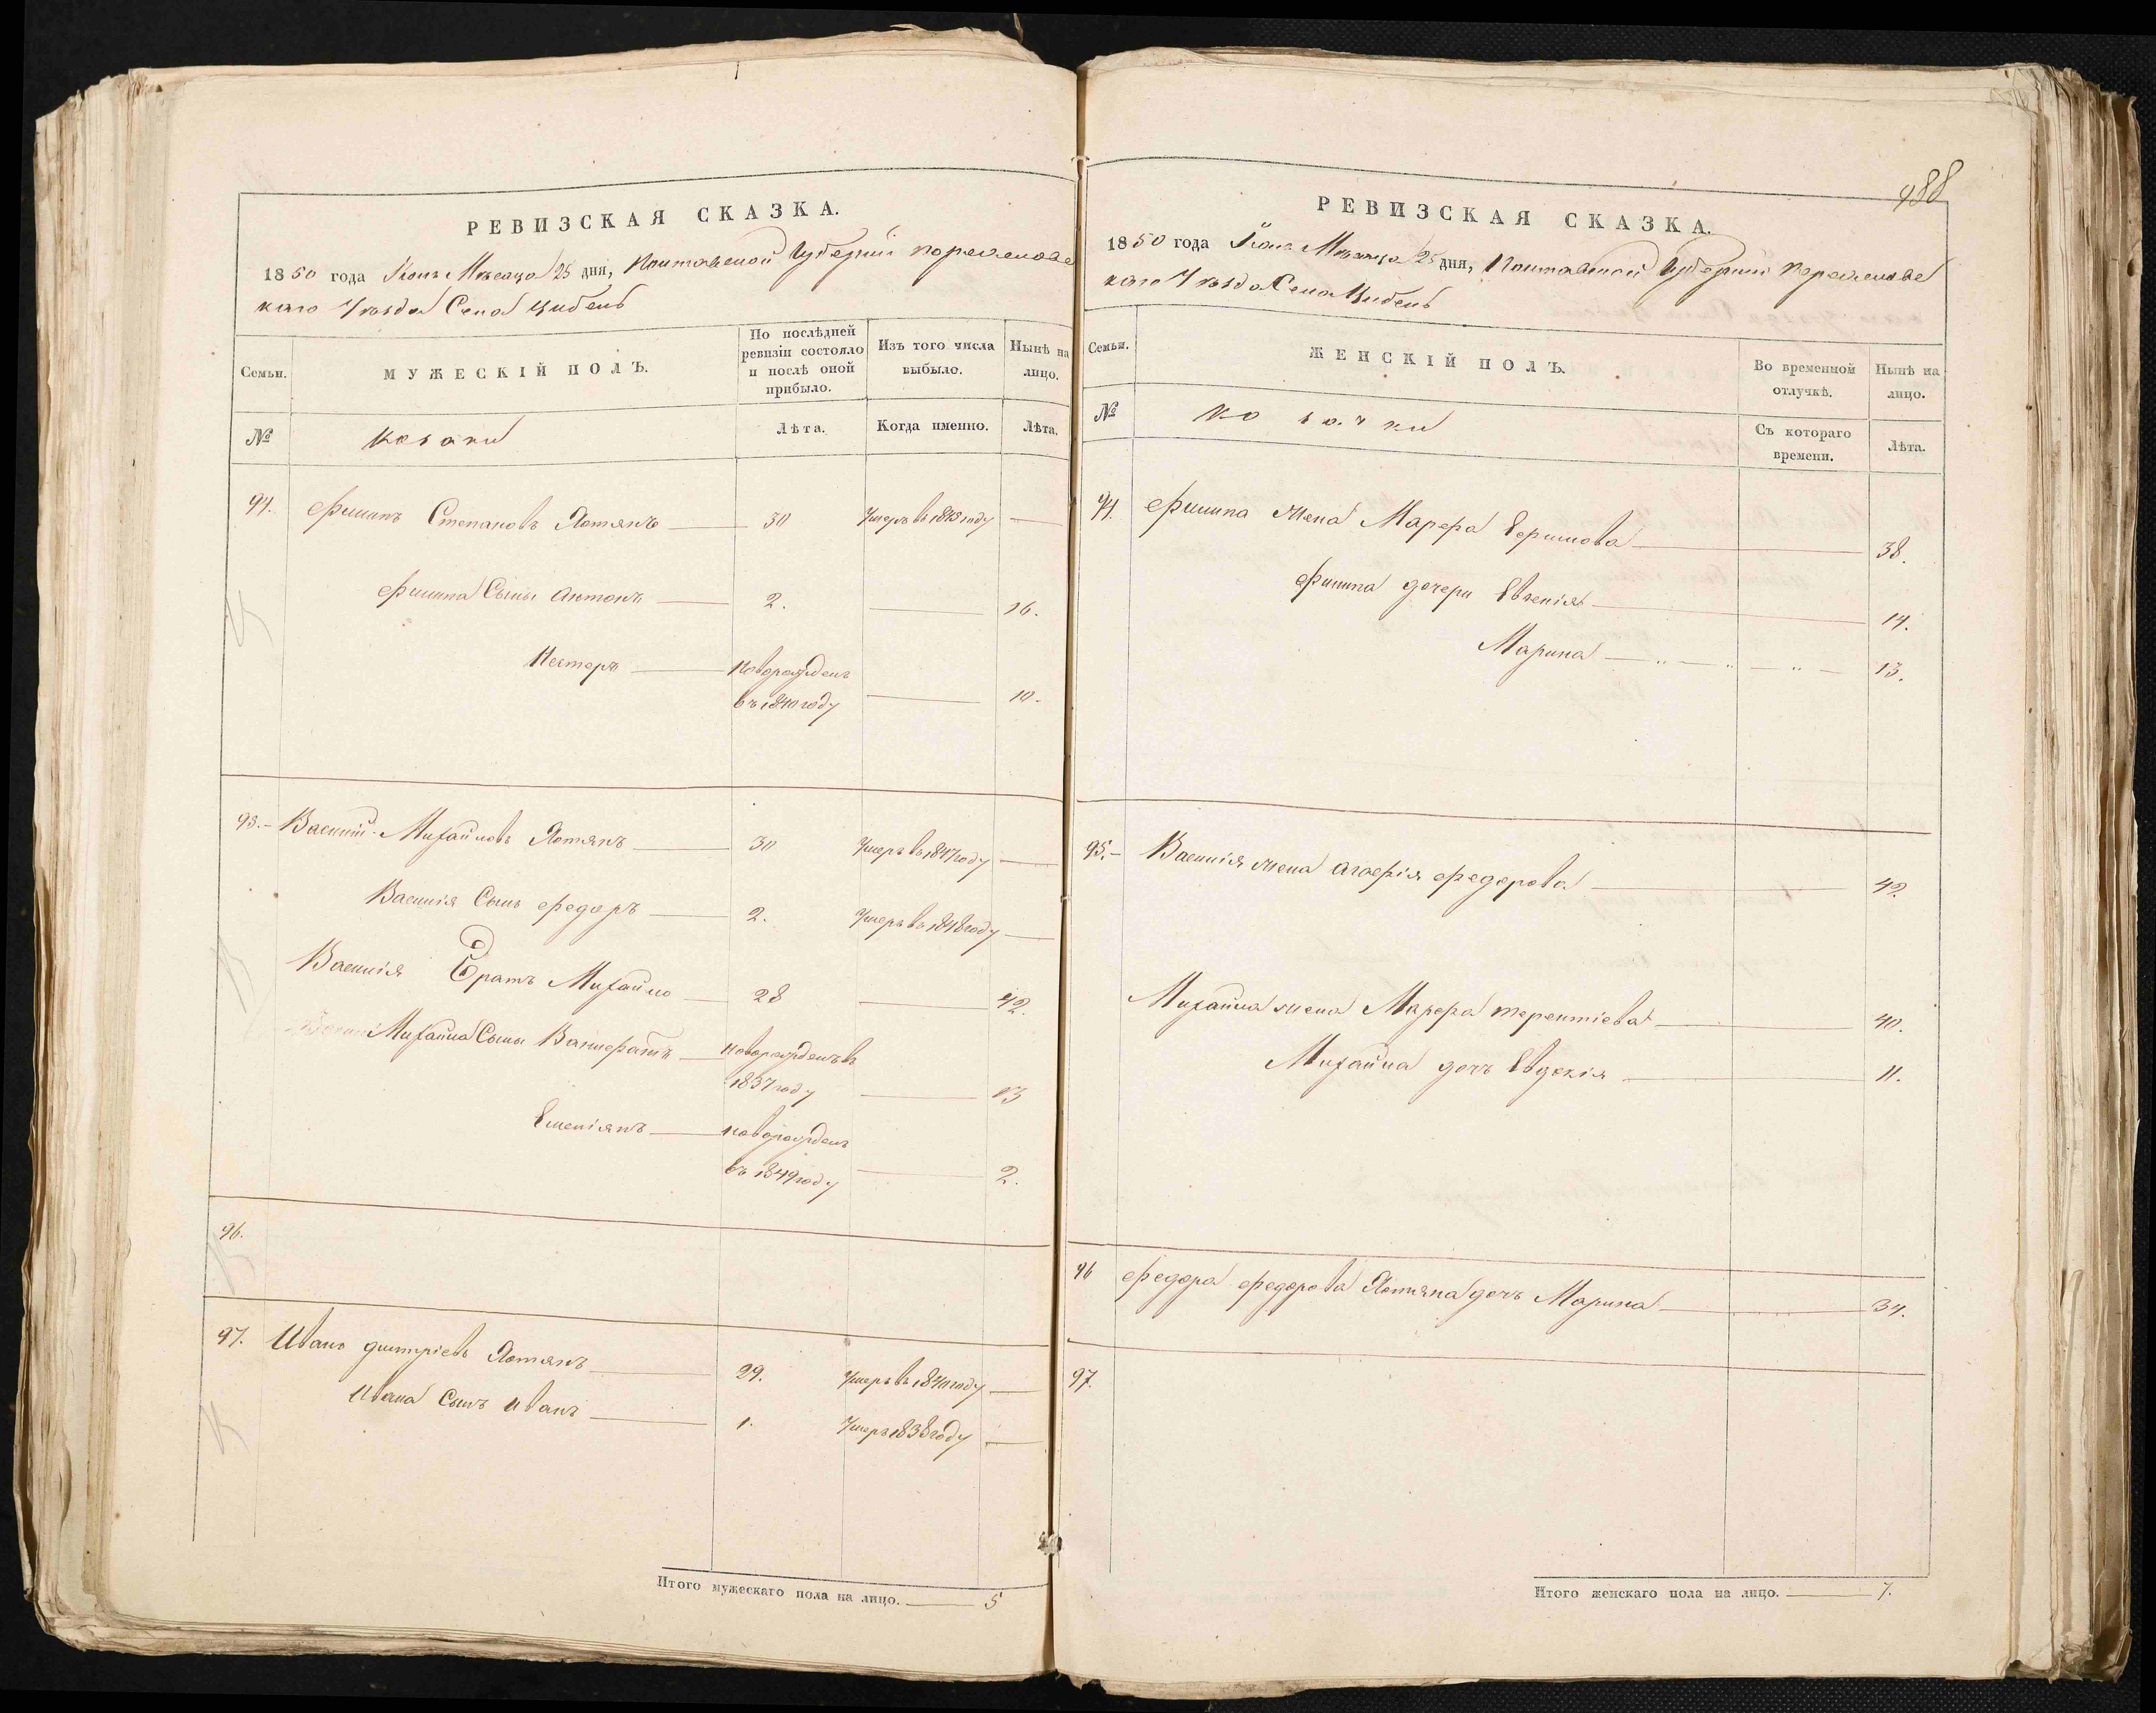 РЕВИЗСКАЯ СКАЗКА.
1850 года Іюня Мѣсяца 25 дня, Полтавской Губерніи Переяславс
каго Уѣзда Села Цибель
Семьи.
МУЖЕСКІЙ ПОЛЪ.
По послѣдней ревизіи состояло и послѣ оной прибыло.
Изъ того числа выбыло.
Нынѣ на лицо.
№
Козаки
Лѣта.
Когда именно.
Лѣта.
94. Филипъ Степановъ Лотянъ 30 Умеръ въ 1843 году
Филипа Сыны Антонъ 2. 16.
Нестеръ Новорожденъ
въ 1840 году 10.
95. Василий Михайловъ Лотянъ 30 Умеръ въ 1847 году
Василія Сынъ Федоръ 2. Умеръ въ 1848 году
Василія Братъ Михайло 28 42.
Михайла Сыны новорожденъ въ
1837 году 13
Емеліянъ новорожденъ
въ 1849 году 2.
96.
97. Иванъ Дмитріевъ Лотянъ 29. Умеръ въ 1840 году
Ивана Сынъ Иванъ 1. Умеръ 1838 году
Итого мужескаго пола на лицо. 5
488
РЕВИЗСКАЯ СКАЗКА.
1850 года Іюня Мѣсяца 25 дня, Полтавской Губерніи Переяславс
каго Уѣзда Села Цибель
Семьи.
ЖЕНСКІЙ ПОЛЪ.
Во временной отлучкѣ.
Нынѣ на лицо.
№
Козачки
Съ котораго времени.
Лѣта.
94. Филипа жена Марфа Ефимова 38.
Филипа дочери Евгенія 14.
Марина 13.
95. Василія жена Агафія Федорова 42.
Михайла жена Марфа Терентіева 40.
Михайла дочь Евдокія 11.
96 Федора Федорова Лотяна дочь Марина 34.
97.
Итого женскаго пола на лицо. 7.